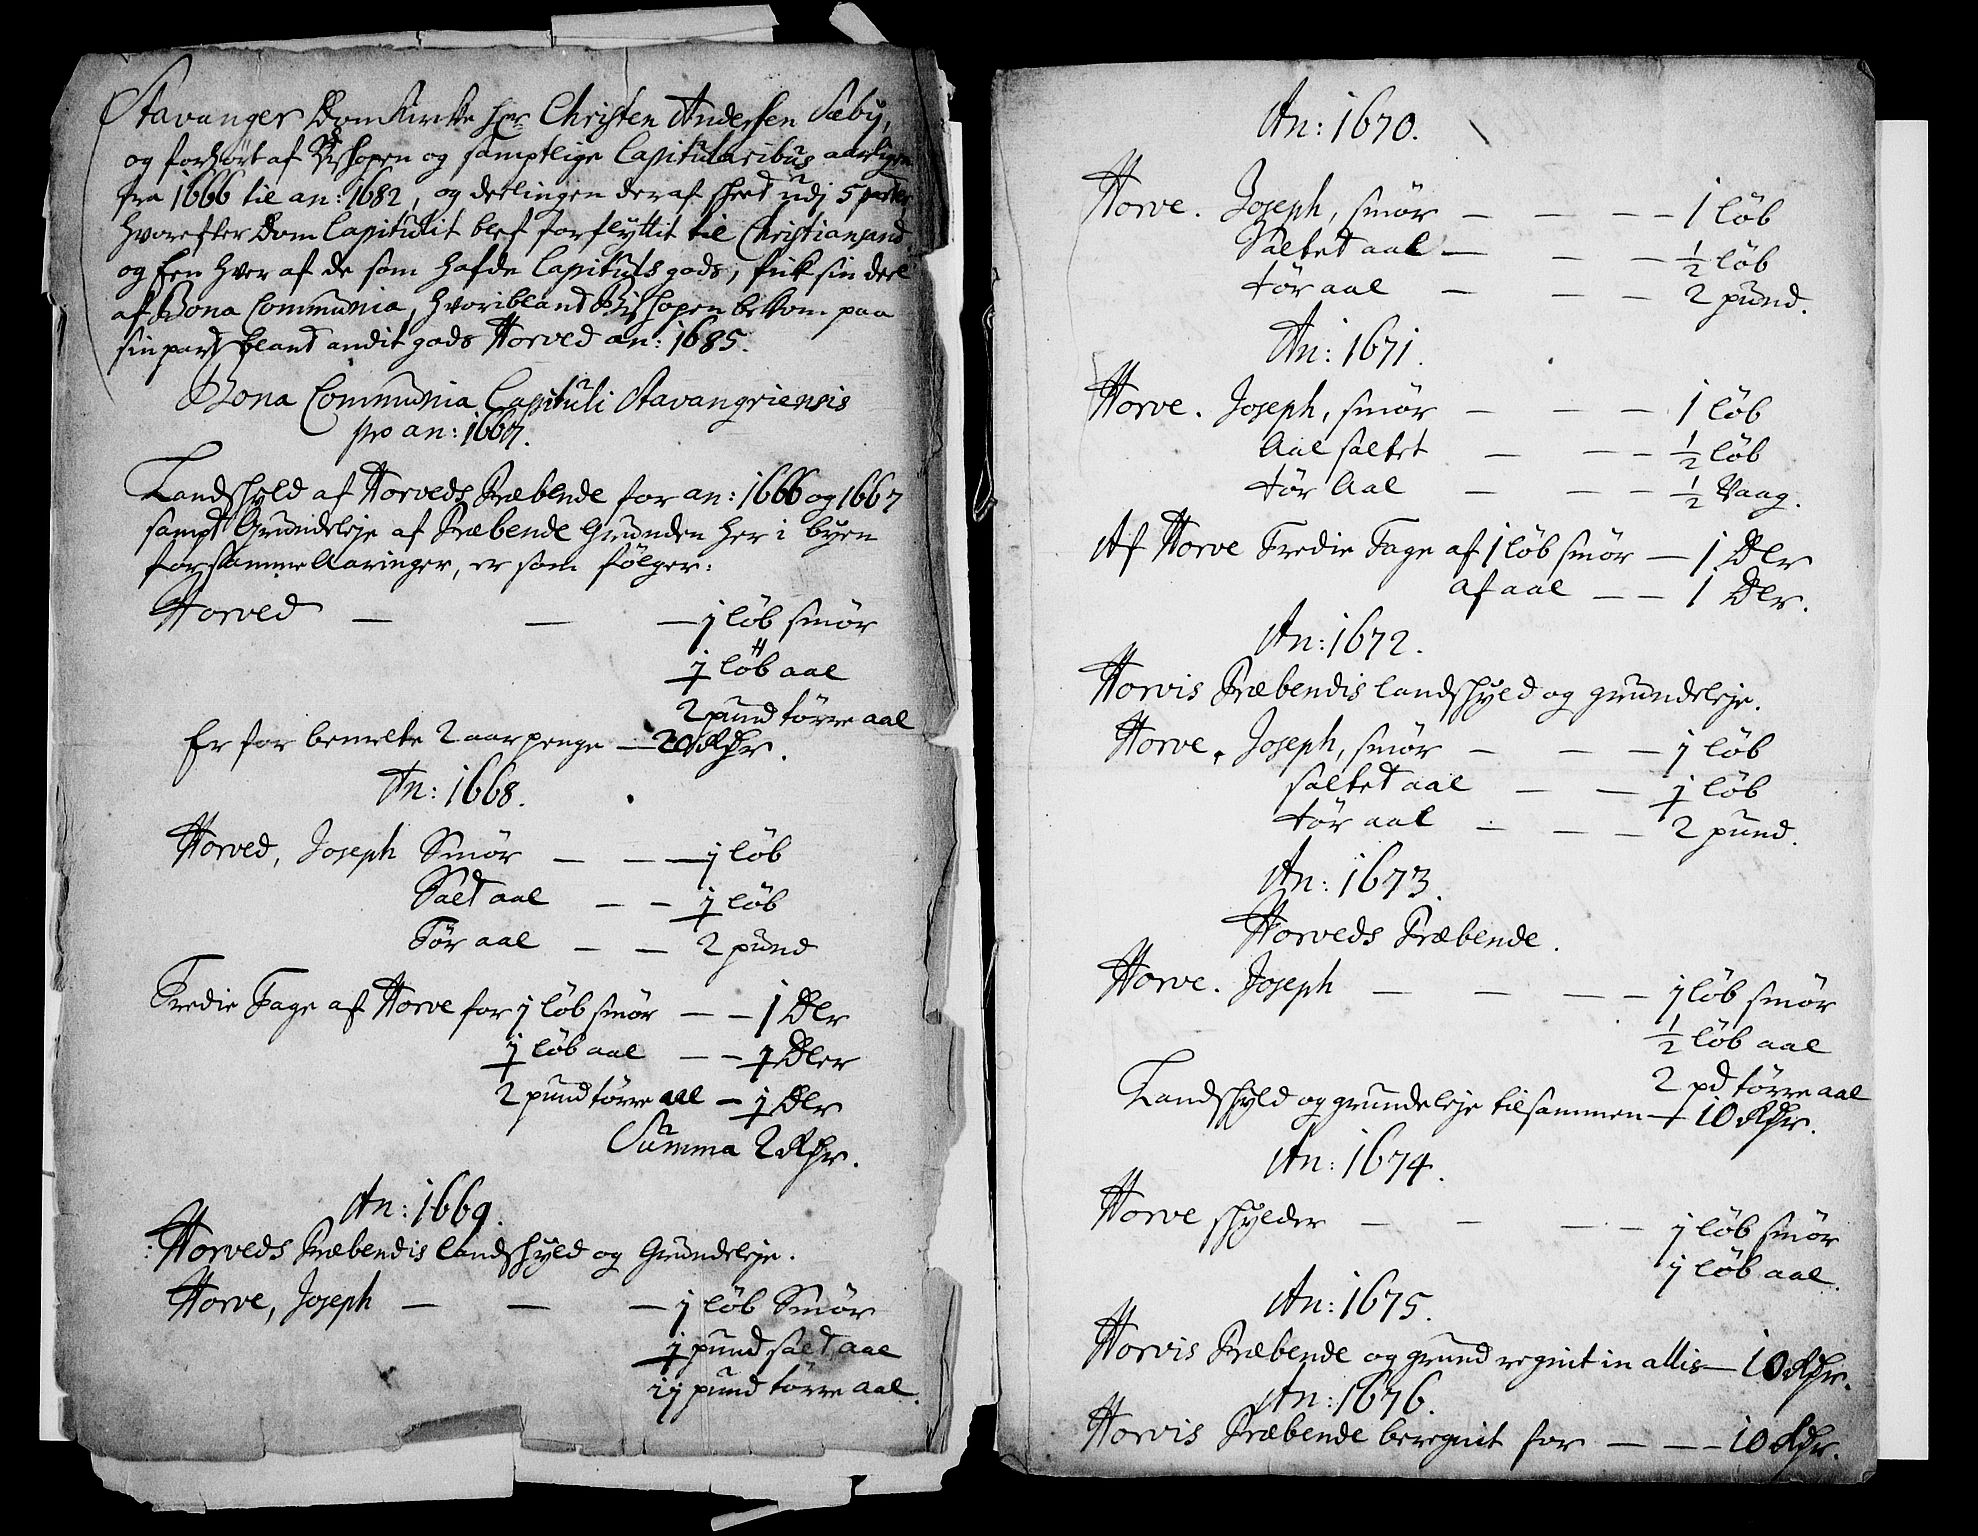 Stavanger DomKirke hr Christen Andersen Sæby,
og forhørt af Bishopen og samptlige Capitularibus aarligen
fra 1666 til an: 1682, og deelingen deraf skeet udj 5 parter,
hvorefter DomCapitulit blef forflyttit til Christiansand,
og Een hver af de som hafde Capituls gods, fik sin deel
af Bona Communia, hvoriblant Bishopen bekom paa
sin part blant andit gods Horved an: 1685.
Bona Communia Capituli Stavangriensis
pro an: 1667.
Landskyld af Horveds Præbende for an: 1666 og 1667
sampt Grundeleje af Præbende Grunden her i byen
for samme Aaringer, er som følger:
Horved — — — 1 løb smør
½ løb aal
2 pund tørre aal
Er for bemelte 2 aar penge — 20 Rdr.
An: 1668.
Horved, Joseph Smør — — — 1 løb
Salt aal — — ½ løb
Tør aal — — 2 pund
Tredie Tage af Horve for 1 løb smør — — 1 Dlr
½ løb aal — — ½ Dler
2 pund tørre aal — ½ Dlr
Summa 2 Rdr.
An: 1669.
Horveds Præbendis landskyld og Grundeleje.
Horve, Joseph — — — 1 løb Smør
½ pund salt aal
ij pund tørre aal.
An: 1670.
Horve. Joseph, smør — — — — 1 løb
Saltet aal — — — ½ løb
tør aal — — — 2 pund.
An: 1671.
Horve. Joseph, smør — — — 1 løb
Aal saltet — — — ½ løb
tør Aal — — — ½ Vaag.
Af Horve Tredie Tage af 1 løb smør — 1 Dlr
af aal — — 1 Dlr.
An: 1672.
Horvis Præbendis landskyld og grundeleje.
Horve, Joseph, smør — — — 1 løb
saltet aal — — ½ løb
tør aal — — — 2 pund.
An: 1673.
Horveds Præbende.
Horve. Joseph — — — — 1 løb smør
½ løb aal
2 pd tørre aal
Landskyld og grundeleje tilsammen — 10 Rdr.
An: 1674.
Horve skylder — — — — 1 løb smør
1 løb aal.
An: 1675.
Horvis Præbende og grund regnit in alles — 10 Rdr.
An: 1676.
Horvis Præbende beregnit for — — — 10 Rdr.